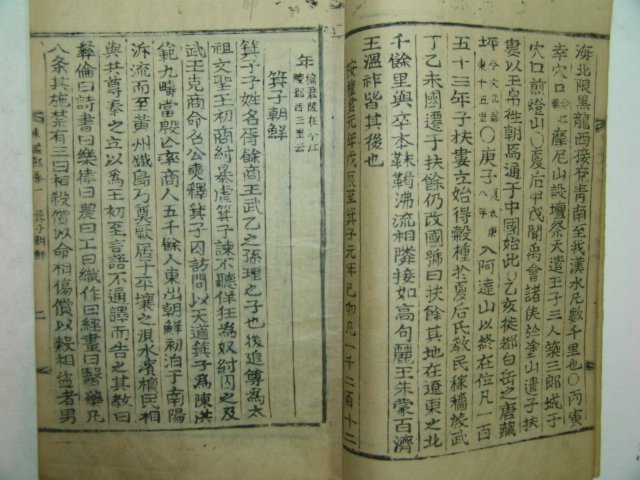 海北限黑龍西接在靑南至我漢水凡數千里也〇丙寅
幸穴口今江華摩尼山設壇祭天遣王子三人築三郞城子
穴口前燈山〇夏后甲戌聞禹會諸侯於塗山遣子扶
婁以玉帛徃朝焉通于中國始此〇乙亥徙都白岳之唐藏
坪今文化郡東十五里〇庚子夏太康八年入阿達山以終在位凡一百
五十三年子扶婁立始得穀種於夏后氏敎民稼穡於武
丁乙未國遷子扶餘仍改國號曰扶餘其地在遼東之北
千餘里與卒本靺鞨沸流相隣接如高句麗王朱蒙百濟
王溫祚皆其後也
按檀君元年戊辰至箕子元年己卯凡一千二百十二
年檀君陵在今江陵郡西三里云
箕子朝鮮
箕子子姓名胥餘商王武乙之孫理之子也後追尊爲太
祖文聖王初商紂暴虐箕子諫不聽佯狂爲奴紂囚之及
武王克商命召公奭釋箕子囚訪問以天道箕子爲陳洪
範九疇當殷亡率商人五千餘人東出朝鮮初泊于南陽
泝流而至黃州鐵島乃奠厥居于平壤之浿水濱檀民相
與共尊奉之立以爲王初至言語不通譯而告之其敎曰
彛倫曰詩書曰樂律曰農曰工曰織作曰經畫曰醫藥凡
八条其施禁有三曰相殺償以命相傷償以穀相盜者男
箕子朝鮮
二